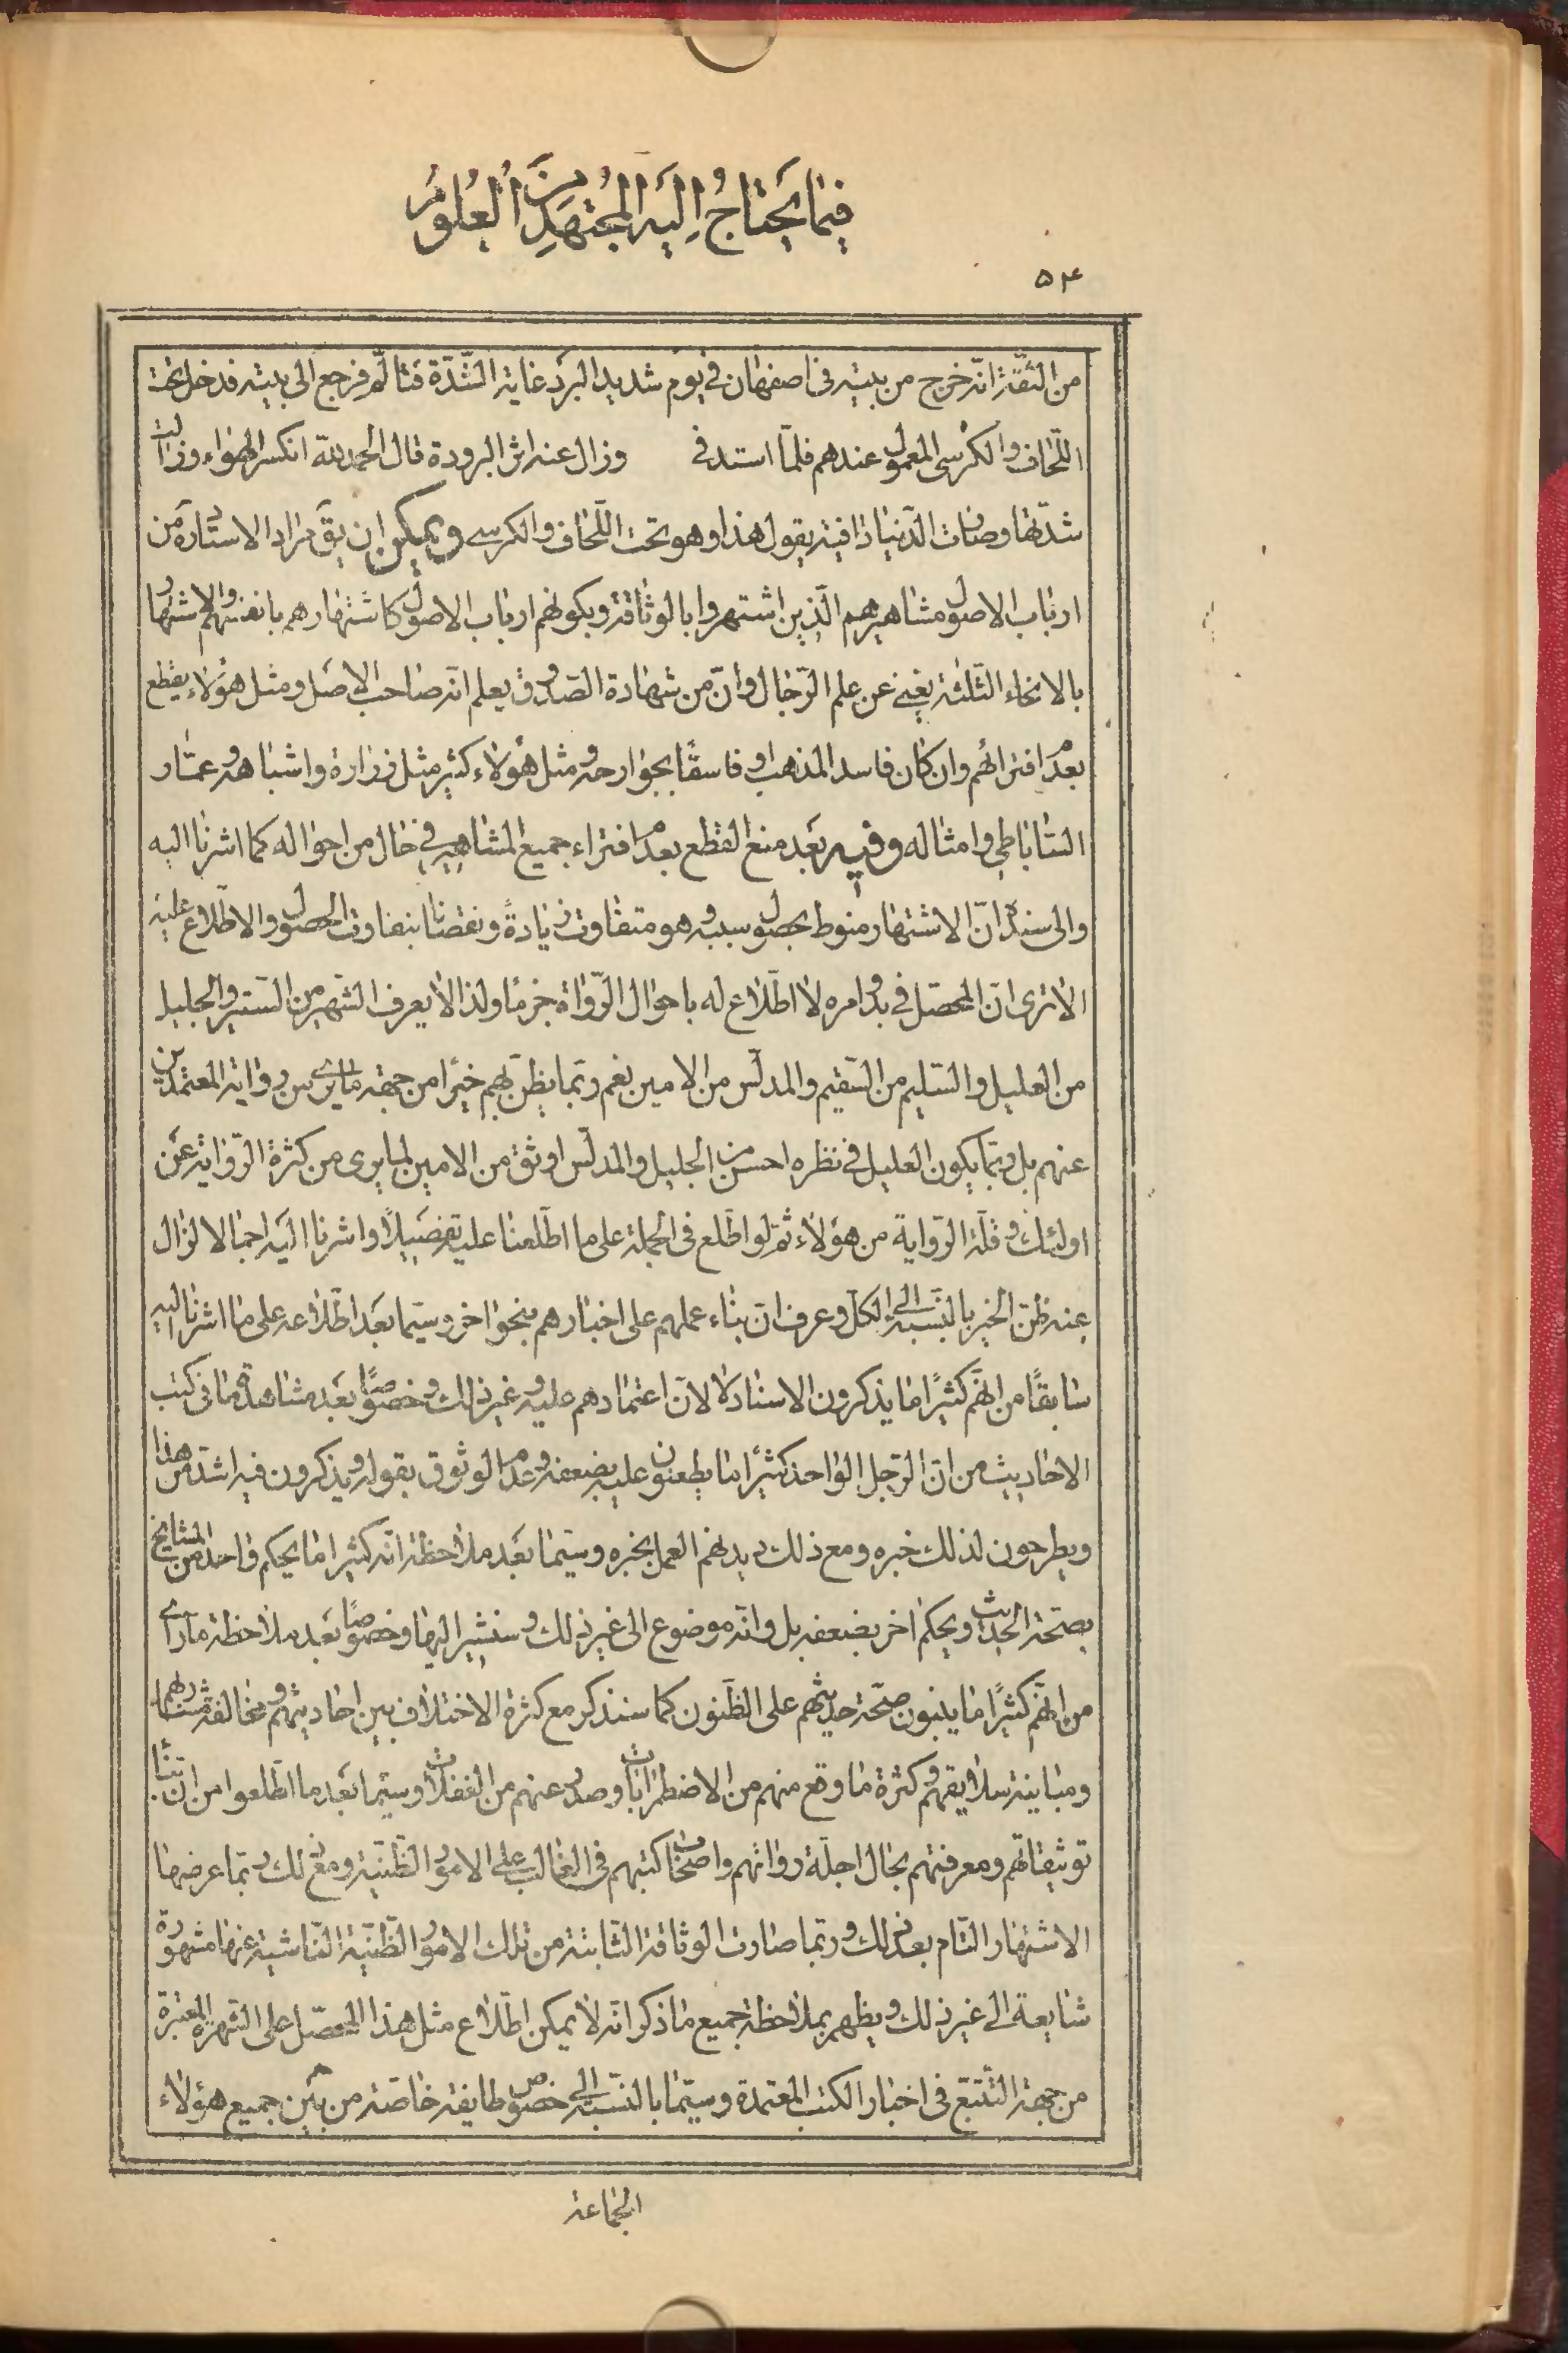 فيما يحتاج اليه المجتهد من العلوم
٥٤
من الثقة انه خرج من بيته فى اصفهان فى يوم شديد البرد غاية الشدة فتالم فرجع الى بيته فدخل تحت
اللحاف والكرسى المعمول عندهم فلما استدفى وزال عنه اثر البرودة قال الحمد لله انكسر الهواء وزالت
شدتها وصارت الدنيا دافية يقول هذا وهو تحت اللحاف والكرسى ويمكن ان يق مراد الاستاد من
ارباب الاصول مشاهيرهم الذين اشتهروا بالوثاقة وبكونهم ارباب الاصول كاشتهارهم بانفسهم والاشتهار
بالانحاء الثلثة يغنى عن علم الرجال وان من شهادة الصدوق يعلم انه صاحب الاصل ومثل هؤلاء يقطع
بعدم افترائهم وان كان فاسد المذهب او فاسقا بجوارحه ومثل هؤلاء كثير مثل زرارة واشباهه وعمار
الساباطى وامثاله وفيه بعد منع القطع بعدم افتراء جميع المشاهير فى حال من احواله كما اشرنا اليه
والى سنده ان الاشتهار منوط بحصول سببه وهو متفاوت زيادة ونقصانا بتفاوت الحصول والاطلاع عليه
الا ترى ان المحصل فى بدو امره لا اطلاع له باحوال الرواة جزما ولذا لا يعرف الشهير من الستير والجليل
من العليل والسليم من السقيم والمدلس من الامين نعم ربما يظن بهم خيرا من جهة ما يرى من رواية المعتمدين
عنهم بل ربما يكون العليل فى نظره احسن من الجليل والمدلس اوثق من الامين لما يرى من كثرة الرواية عن
اولئك وقلة الرواية من هؤلاء ثم لو اطلع فى الجملة على ما اطلعنا عليه تفصيلا واشرنا اليه اجمالا لزال
عنه ظن الخير بالنسبة الى الكل وعرف ان بناء عملهم على اخبارهم بنحو اخر وسيما بعد اطلاعه على ما اشرنا اليه
سابقا من انهم كثيرا ما يذكرون الاسناد لا لان اعتمادهم عليه وغير ذلك وخصوصا بعد مشاهدة ما فى كتب
الاحاديث من ان الرجل الواحد كثيرا ما يطعنون عليه بضعفه وعدم الوثوق بقوله ويذكرون فيه اشد من هذا
ويطرحون لذلك خبره ومع ذلك ديدنهم العمل بخبره وسيما بعد ملاحظة انه كثيرا ما يحكم واحد من المشايخ
بصحة الحديث ويحكم اخر بضعفه بل وانه موضوع الى غير ذلك وسنشير اليها وخصوصا بعد ملاحظة ما راى
من انهم كثيرا ما يبنون صحة حديثهم على الظنون كما سنذكر مع كثرة الاختلاف بين احاديثهم ومخالفة مشاربهم
ومباينة سلايقهم وكثرة ما وقع منهم من الاضطرابات وصدر عنهم من الغفلات وسيما بعد ما اطلعوا من ان بناء
توثيقاتهم ومعرفتهم بحال اجلة رواتهم واصحاب كتبهم فى الغالب على الامور الظنية ومع ذلك ربما عرضها
الاشتهار التام بعد ذلك وربما صارت الوثاقة الثابتة من تلك الامور الظنية الناشية عنها مشهورة
شايعة الى غير ذلك ويظهر بملاحظة جميع ما ذكر انه لا يمكن اطلاع مثل هذا المحصل على الشهرة المعتبرة
من جهة التتبع فى اخبار الكتب المعتمدة وسيما بالنسبة الى خصوص طايفة خاصة من بين جميع هؤلاء
الجماعة